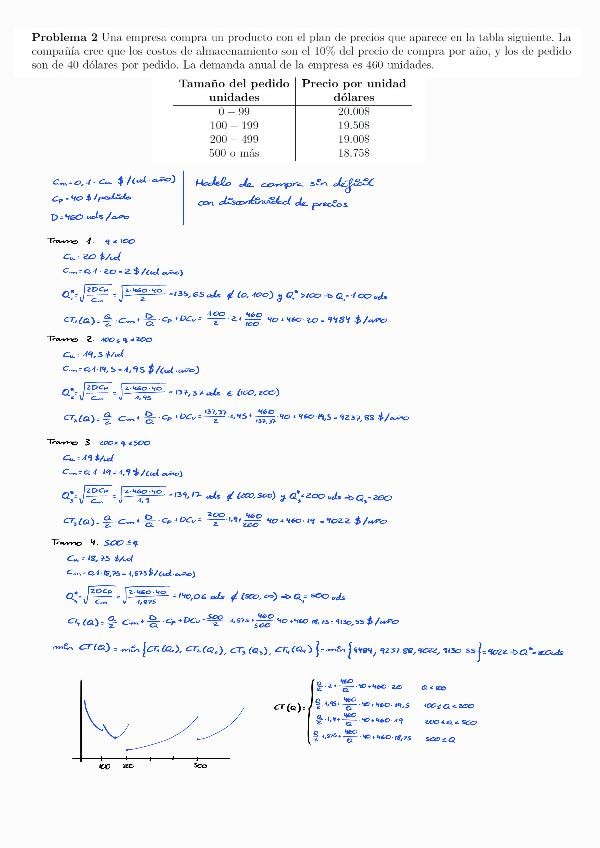 Problema 2 Una empresa compra un producto con el plan de precios que aparece en la tabla siguiente. La
compañía cree que los costos de almacenamiento son el 10% del precio de compra por año, y los de pedido
son de 40 dólares por pedido. La demanda anual de la empresa es 460 unidades.
Tamaño del pedido Precio por unidad
unidades dólares
0 − 99 20.00$
100 − 199 19.50$
200 − 499 19.00$
500 o más 18.75$
Cm=0,1·Cu $/(ud·año)
Cp=40 $/pedido
D=460 uds/año
Modelo de compra sin déficit
con discontinuidad de precios
Tramo 1. q<100
Cu=20 $/ud
Cm=0,1·20=2 $/(ud·año)
Q₁*=√(2DCp/Cm)=√(2·460·40/2)=135,65 uds ∉ (0,100) y Q₁*>100 ⇒ Q₁=100 uds
CT₁(Q)=Q/2·Cm+D/Q·Cp+DCu=100/2·2+460/100·40+460·20=9484 $/año
Tramo 2. 100≤q<200
Cu=19,5 $/ud
Cm=0,1·19,5=1,95 $/(ud·año)
Q₂*=√(2DCp/Cm)=√(2·460·40/1,95)=137,37 uds ∈ (100,200)
CT₂(Q)=Q/2·Cm+D/Q·Cp+DCu=137,37/2·1,95+460/137,37·40+460·19,5=9237,88 $/año
Tramo 3 200≤q<500
Cu=19 $/ud
Cm=0,1·19=1,9 $/(ud·año)
Q₃*=√(2DCp/Cm)=√(2·460·40/1,9)=139,17 uds ∉ (200,500) y Q₃*<200 uds ⇒ Q₃=200
CT₃(Q)=Q/2·Cm+D/Q·Cp+DCu=200/2·1,9+460/200·40+460·19=9022 $/año
Tramo 4. 500≤q
Cu=18,75 $/ud
Cm=0,1·18,75=1,875 $/(ud·año)
Q₄*=√(2DCp/Cm)=√(2·460·40/1,875)=140,06 uds ∉ (500,∞) ⇒ Q₄=500 uds
CT₄(Q)=Q/2·Cm+D/Q·Cp+DCu=500/2·1,875+460/500·40+460·18,75=9130,55 $/año
min CT(Q)=min{CT₁(Q₁), CT₂(Q₂), CT₃(Q₃), CT₄(Q₄)}=min{9484, 9237.88, 9022, 9130.55}=9022⇒Q*=200uds
CT(Q)=
Q/2·2+460/Q·40+460·20 Q<100
Q/2·1,95+460/Q·40+460·19,5 100≤Q<200
Q/2·1,9+460/Q·40+460·19 200≤Q<500
Q/2·1,875+460/Q·40+460·18,75 500≤Q
100 500